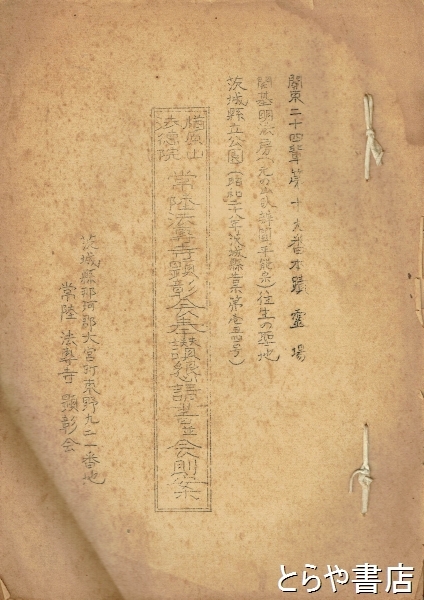 関東二十四輩第十九番本蹟霊場
開基明法房(元の山伏辯円)往生の聖地
茨城縣立公園(昭和二十八年茨城縣告示第壱五四号)
楢原山
法徳院
常陸法専寺顕彰会奉讃懇請書並会則案
茨城縣那珂郡大宮町東野九二一番地
常陸法専寺顕彰会
とらや書店